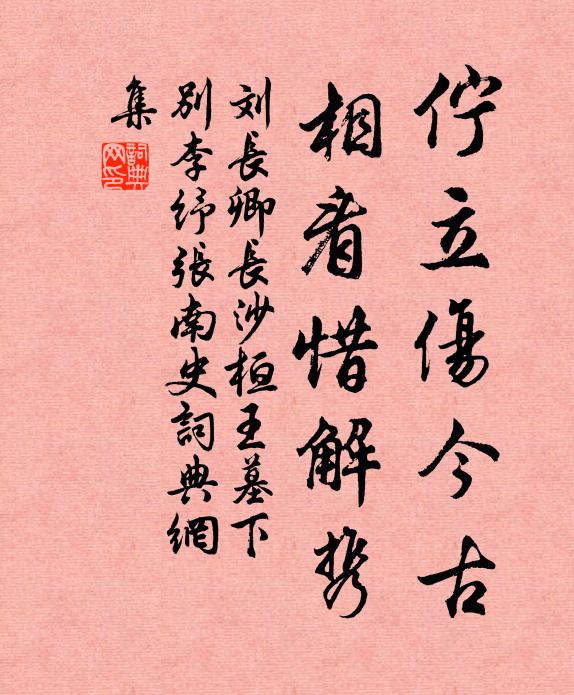 佇立傷今古
相看惜解携
刘長卿長沙桓王墓下
別李紓張南史詞典網
集
詞典
网印